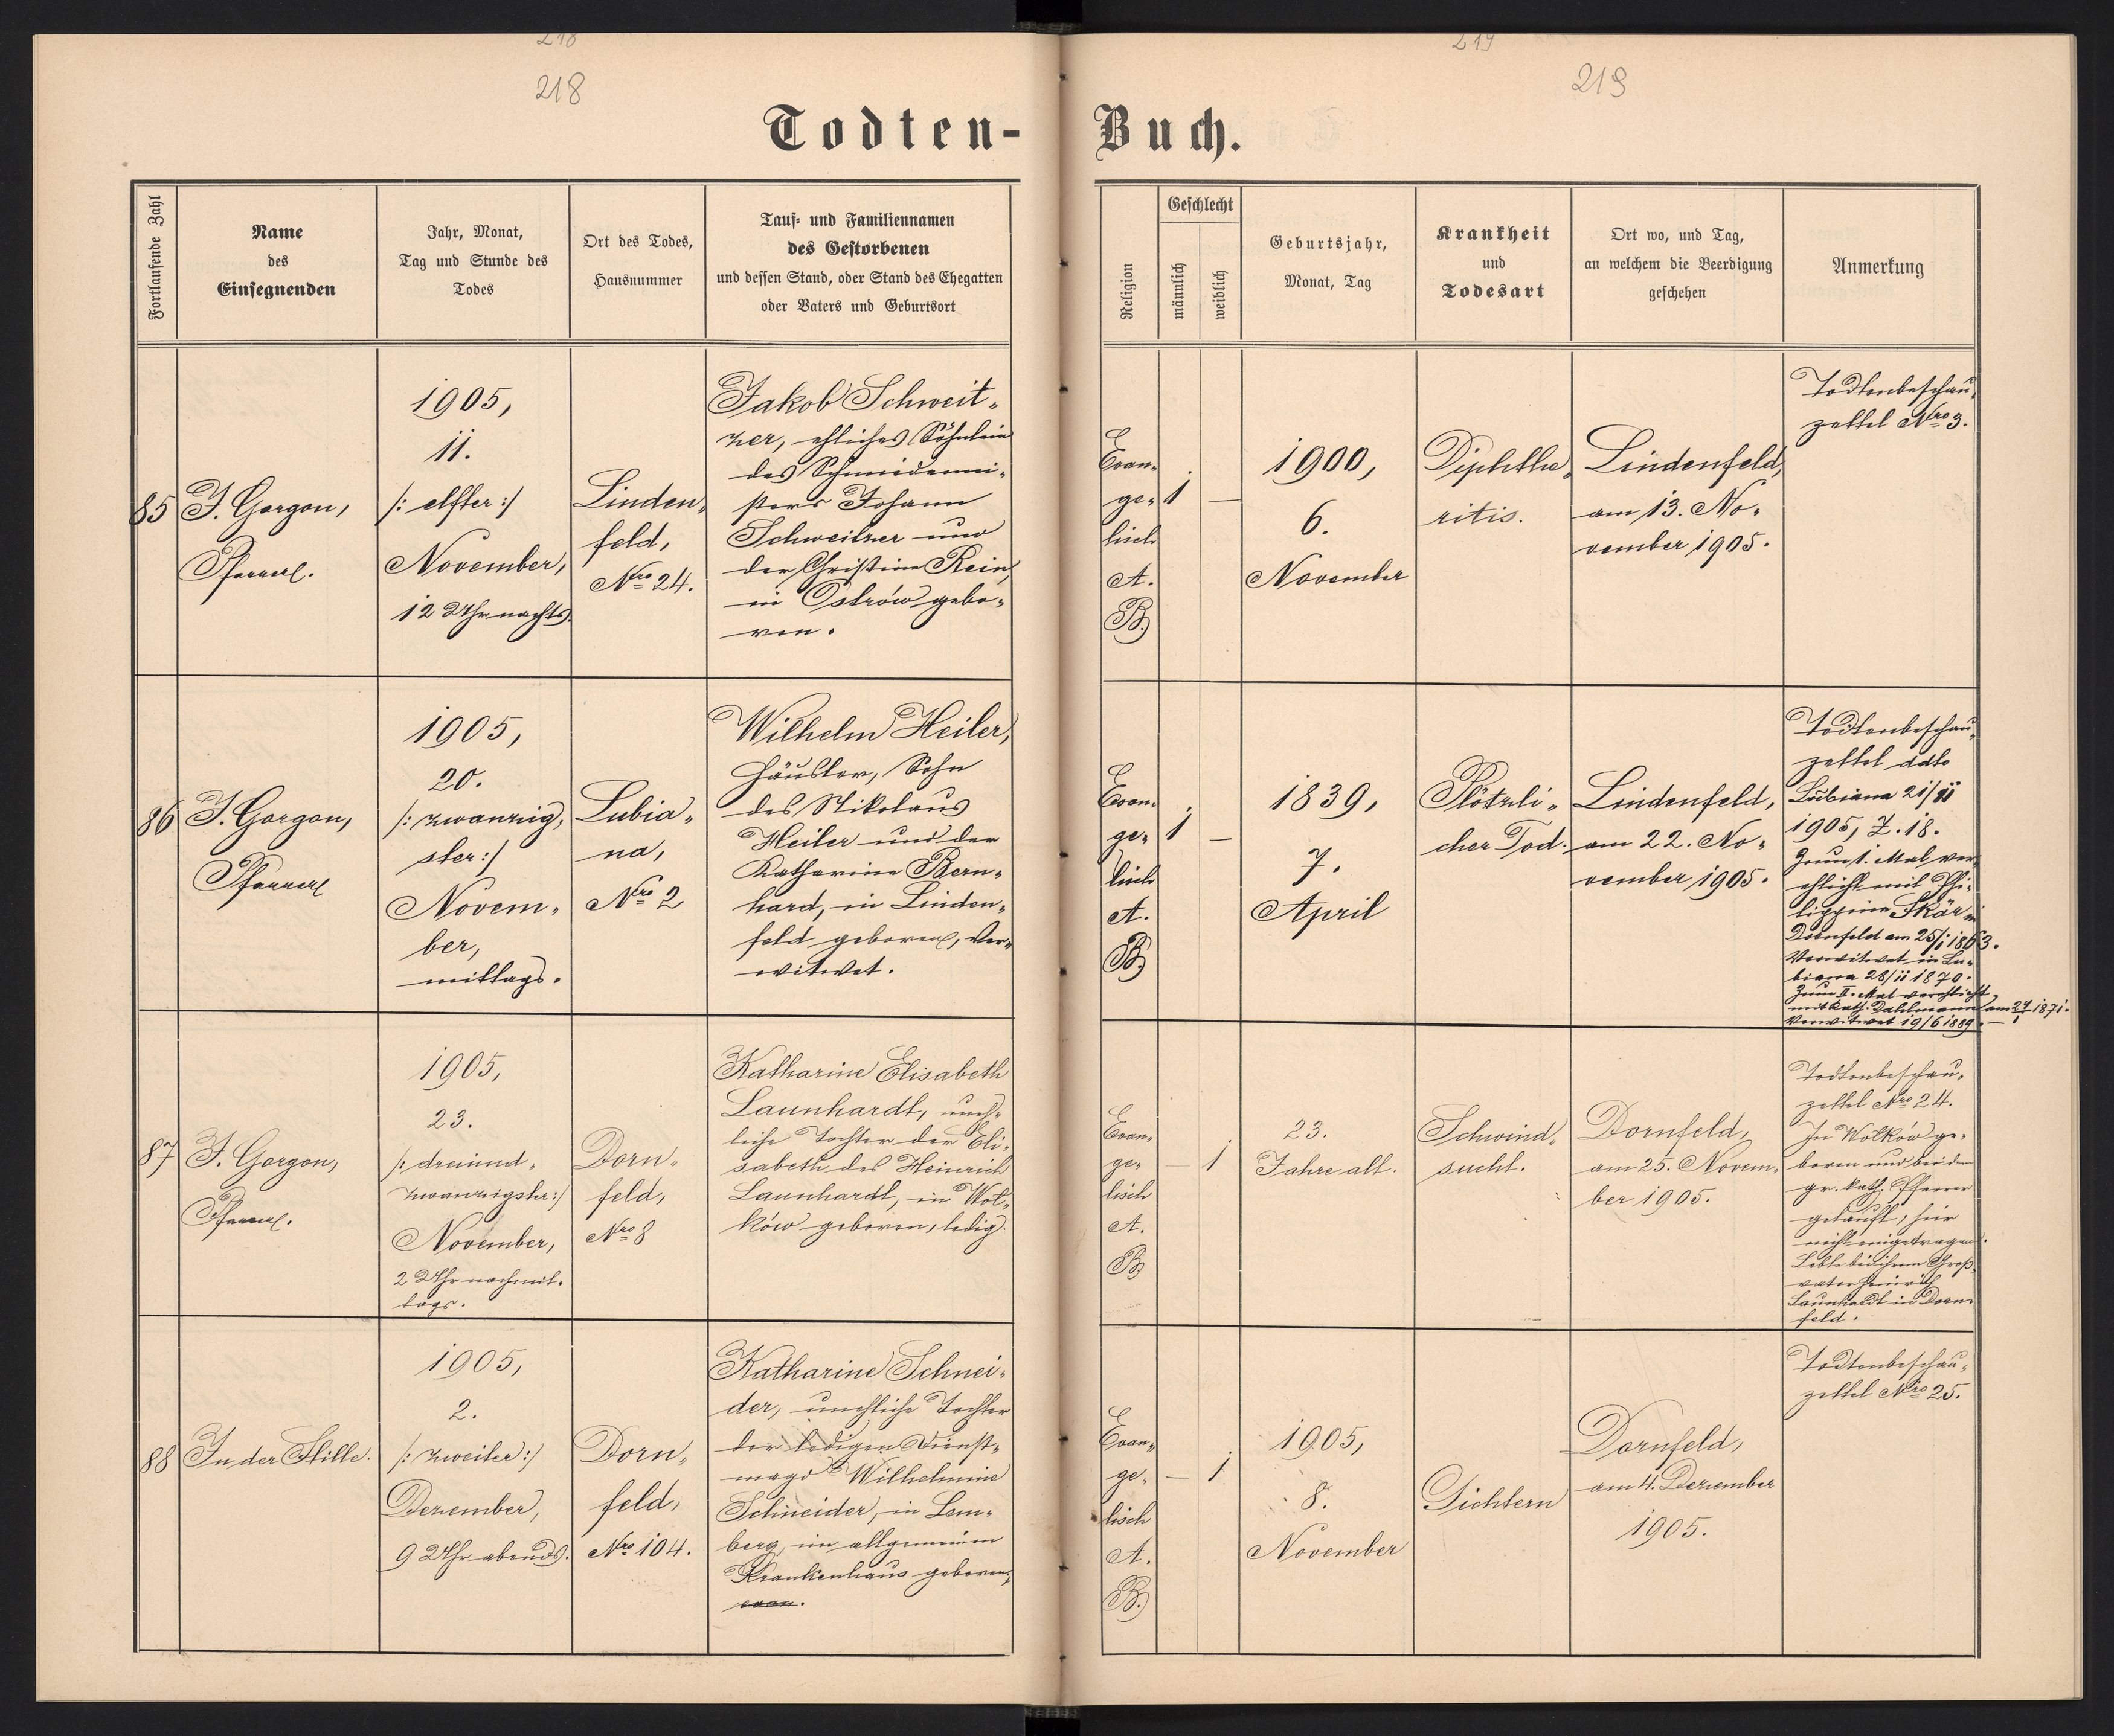 218
219
218
219
Todten-
Buch.
Fortlaufende Zahl
Name
des
Einsegnenden
Jahr, Monat,
Tag und Stunde des
Todes
Ort des Todes,
Hausnummer
Tauf- und Familiennamen
des Gestorbenen
und dessen Stand, oder Stand des Ehegatten
oder Vaters und Geburtsort
Religion
Geschlecht
männlich
weiblich
Geburtsjahr,
Monat, Tag
Krankheit
und
Todesart
Ort wo, und Tag,
an welchem die Beerdigung
geschehen
Anmerkung
85
J. Gorgon,
Pfarrer.
1905,
11.
/: elfter :/
November,
12 Uhr nachts.
Linden-
feld,
Nro 24.
Jakob Schweit-
zer, ehliches Söhnlein
des Schmiedemei-
sters Johann
Schweitzer und
der Christine Rein,
in Ostrów gebo-
ren.
Evan-
ge-
lisch
A.
B.
1
—
1900,
6.
November
Diphthe-
ritis.
Lindenfeld,
am 13. No-
vember 1905.
Todtenbeschau-
zettel Nro 3.
86
J. Gorgon,
Pfarrer
1905,
20.
/: zwanzig-
ster :/
Novem-
ber,
mittags.
Lubia-
na,
Nro 2
Wilhelm Heiler,
Häusler, Sohn
des Nikolaus
Heiler und der
Katharine Bern-
hard, in Linden-
feld geboren, ver-
witwet.
Evan-
ge-
lisch
A.
B.
1
—
1839,
7.
April
Plötzli-
cher Tod.
Lindenfeld,
am 22. No-
vember 1905.
Todtenbeschau-
zettel ddto
Lubiana 21/11
1905, Z. 18.
Zum 1. Mal ver-
ehlicht mit Phi-
lippine Skär in
Dornfeld am 25/1 1863.
Verwitwet in Lu-
biana 28/11 1870.
Zum II. Mal verehlicht
mit Kath. Dahlmann am 24/1 1871.
Verwitwet 19/6 1889.
87
J. Gorgon,
Pfarrer.
1905,
23.
/: dreiund-
zwanzigster :/
November,
2 Uhr nachmit-
tags.
Dorn-
feld,
Nro 8
Katharine Elisabeth
Launhardt, uneh-
liche Tochter der Eli-
sabeth des Heinrich
Launhardt, in Wol-
ków geboren, ledig.
Evan-
ge-
lisch
A.
B.
—
1
23.
Jahre alt.
Schwind-
sucht.
Dornfeld,
am 25. Novem-
ber 1905.
Todtenbeschau-
zettel Nro 24.
In Wolków ge-
boren und bei dem
gr. kath. Pfarrer
getauft, hier
nicht eingetragen.
Lebte bei ihrem Groß-
vater Heinrich
Launhardt in Dorn-
feld.
88
In der Stille.
1905,
2.
/: zweiter :/
Dezember,
9 Uhr abends.
Dorn-
feld,
Nro 104.
Katharine Schnei-
der, unehliche Tochter
der ledigen Dienst-
magd Wilhelmine
Schneider, in Lem-
berg, im allgemeinen
Krankenhaus geboren,
evan.
Evan-
ge-
lisch
A.
B.
—
1
1905,
8.
November
Gichtern
Dornfeld,
am 4. Dezember
1905.
Todtenbeschau-
zettel Nro 25.